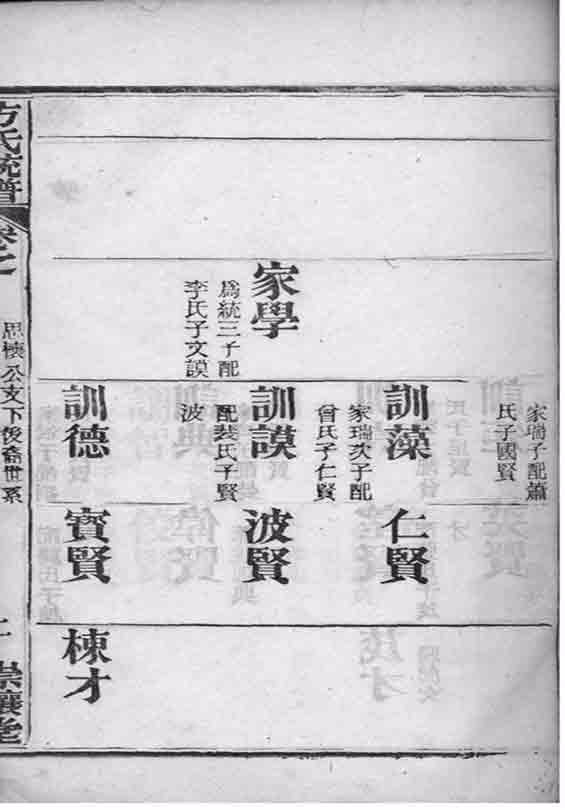 家瑞子配蕭
氏子國賢
家學
爲統三子配
李氏子文謨
訓藻
家瑞次子配
曾氏子仁賢
訓謨
配裴氏子賢
波
訓德
仁賢
波賢
寶賢
棟才
方氏統譜
卷之
思懷公支下後裔世系
崇讓堂